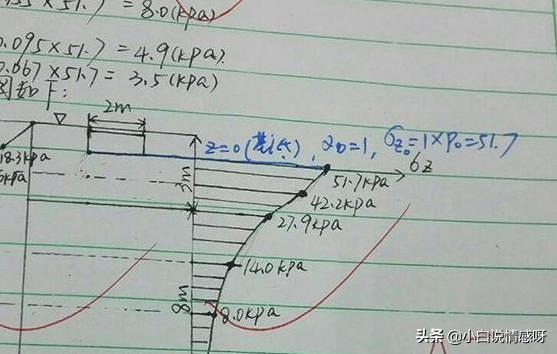 × 51.7 = 8.0(kpa)
0.095×51.7 = 4.9(kpa).
0.067×51.7 = 3.5(kpa)
图如下:
2m
z=0(基底), α0=1, σz0=1×P0=51.7
σz
18.3kpa
kpa
51.7kpa
3m
42.2kpa
27.9kpa
14.0kpa
8m
8.0kpa
头条 @小白说情感呀